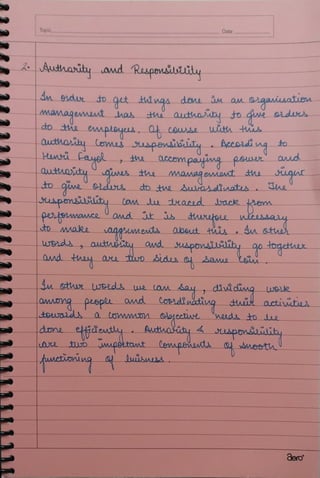 Topic
Date
2. Authority and Responsibility
In order to get things done in an organisation
management has the authority to give orders
do the employees. Of course with this
authority comes responsibility. According to
Henri Fayol, the accompaying power and
authority gives the management the right
to give orders do the subordinates. The
responsibility can be traced back from
performance and it is therefore necessary
to make agreements about this. In other
words, authority and responsibility go together
and they are two sides of same coin.
In other words we can say, dividing work
among people and coordinating their activities
towards a common objective needs to be
done efficiently. Authority & responsibility
are two important components of smooth
functioning of buisness.
aero